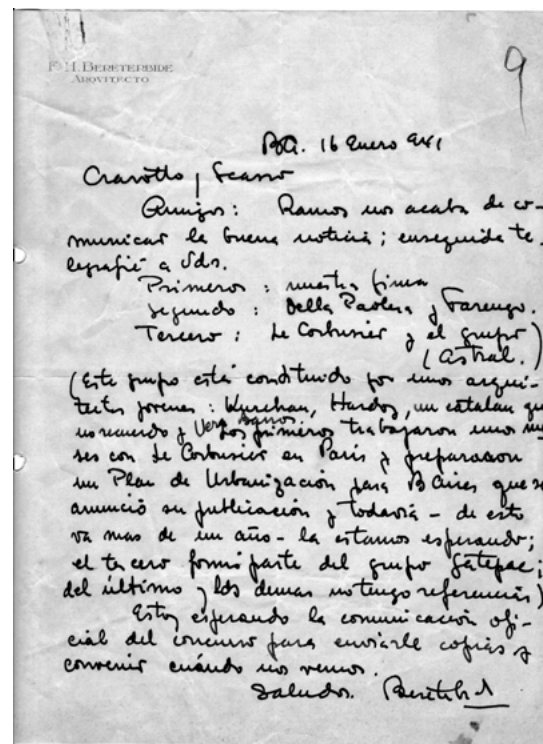 F. H. BERETERBIDE
ARQVITECTO
9
BA. 16 Enero 941
Cravotto y Scasso
Amigos: Ramos nos acaba de co-
municar la buena noticia; enseguida te-
legrafié a Uds.
Primeros: nuestra firma
Segundo: Della Paolera y Farengo.
Tercero: Le Corbusier y el grupo
(Astral.)
(Este grupo está constituido por unos arqui-
tectos jovenes: Kurchan, Hardoy, un catalan que
no recuerdo y Vera Barros. Los primeros trabajaron unos me
ses con Le Corbusier en París y prepararon
un Plan de Urbanización para B Aires que se
anunció su publicación y todavía - de esto
va mas de un año - la estamos esperando;
el tercero formó parte del grupo Gatepac;
del último y los demas no tengo referencias)
Estoy esperando la comunicación ofi-
cial del concurso para enviarle copias y
convenir cuándo nos vemos.
Saludos.